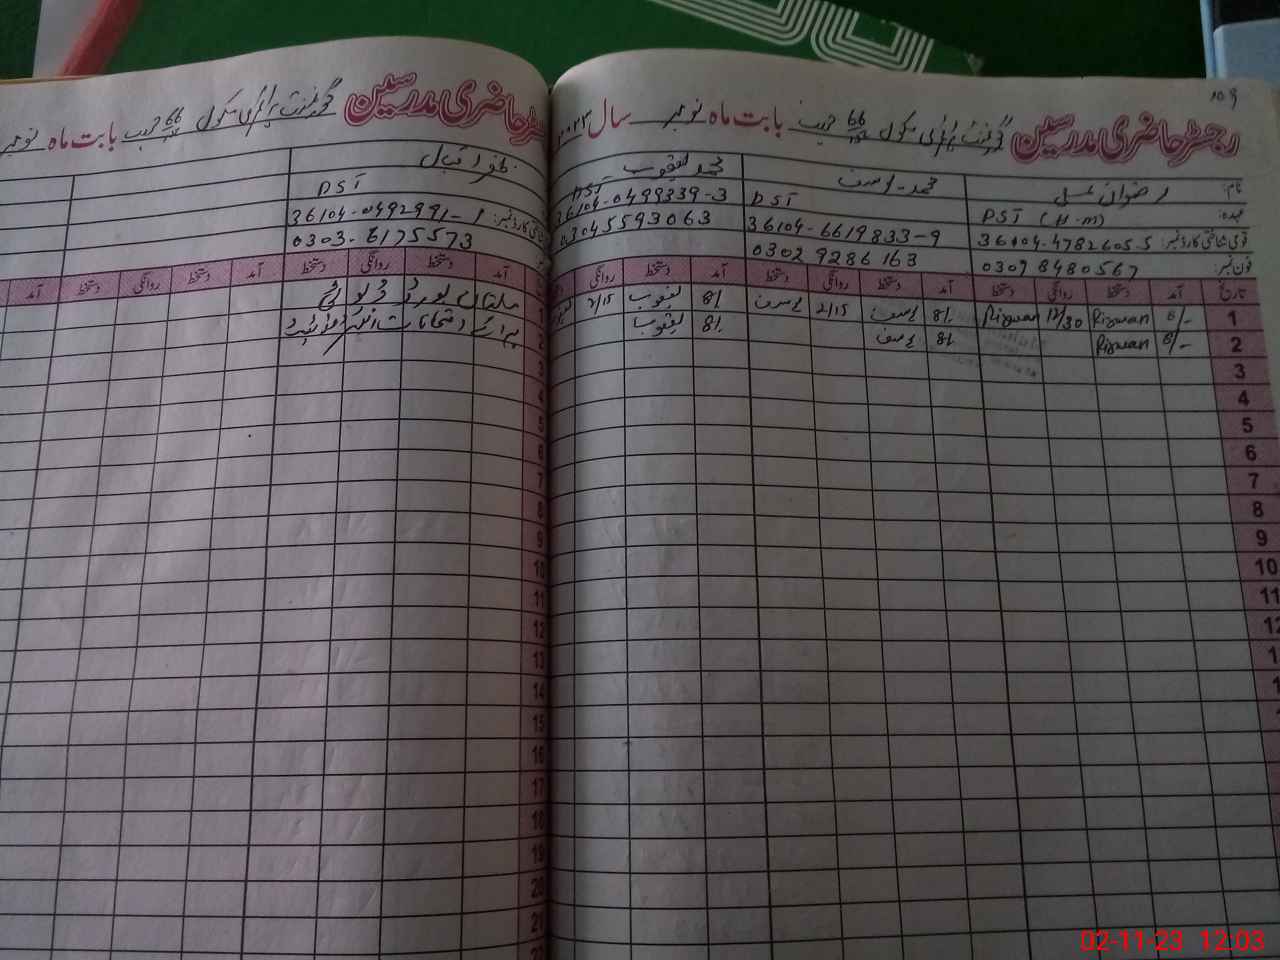 ۱۰۹
رجسٹر حاضری مدرسین گورنمنٹ پرائمری سکول 66 بابت ماہ نومبر سال ۲۰۲۳
نام:
محمد یوسف
محمد یعقوب
عہدہ:
PST (H-M)
PST
PST
قومی شناختی کارڈ نمبر:
36104-4782605-5
36104-6619833-9
36104-0499339-3
فون نمبر:
0309 8480567
0302 9286163
03045593063
تاریخ آمد دستخط روانگی دستخط آمد دستخط روانگی دستخط آمد دستخط روانگی
1 8/- Rizwan 12/30 Rizwan 8/- یوسف 2/15 یوسف 8/- یعقوب 2/15
2 8/- Rizwan 8/- یوسف 8/- یعقوب
3
4
5
6
7
8
9
10
11
12
رجسٹر حاضری مدرسین گورنمنٹ پرائمری سکول 66 بابت ماہ نومبر
ظفر اقبال
PST
شناختی کارڈ نمبر:
36104-0492991-1
0303-6175573
آمد دستخط روانگی دستخط آمد دستخط روانگی دستخط آمد
1 ملتان بورڈ ڈیوٹی
2 برائے امتحانات انٹرمیڈیٹ
3
4
5
6
7
8
9
10
11
12
13
14
15
16
17
18
19
20
21
22
02-11-23 12:03